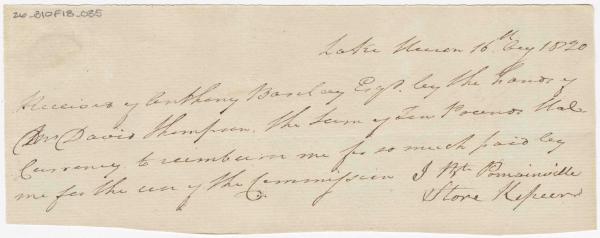 26_B10F18_085
Lake Huron 16th Aug 1820
Received of Anthony Barclay Esqr. by the hands of
Mr David Thompson. the Sum of Ten Pounds Hal.
Currency to reemburse me for so much paid by
me for the use of the Commission J Bte Pomainville
Store Keeper